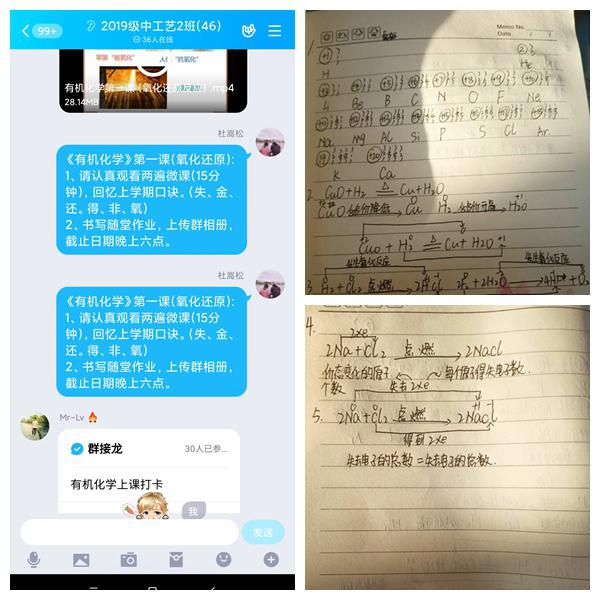 99+
2019级中工艺2班(46)
36人在线
苹果"被氧化"
"抗氧化"
有机化学第一课(氧化还原反应).mp4
28.14MB
杜嵩松
《有机化学》第一课(氧化还原):
1、请认真观看两遍微课(15分
钟), 回忆上学期口诀。(失、金、
还。得、非、氧)
2、书写随堂作业, 上传群相册,
截止日期晚上六点。
杜嵩松
《有机化学》第一课(氧化还原):
1、请认真观看两遍微课(15分
钟), 回忆上学期口诀。(失、金、
还。得、非、氧)
2、书写随堂作业, 上传群相册,
截止日期晚上六点。
Mr-Lv
群接龙
30人已参...
有机化学上课打卡
我
发送
Memo No.
Date
1.
H
He
Be B C N O F Ne
Na Mg Al Si P S Cl Ar
K Ca
2. CuO+H2 △ Cu+H2O
CuO 化合价降低 Cu H2 化合价升高 H2O
CuO + H2 △ Cu+H2O
3. H2+Cl2 点燃 2HCl
4.
2xe
2Na+Cl2 点燃 2NaCl
价态变化的原子 每个原子得失电子数.
个数
失去2xe
5. 2Na+Cl2 点燃 2NaCl
得到2xe
失去电子的总数=失去电子的总数.